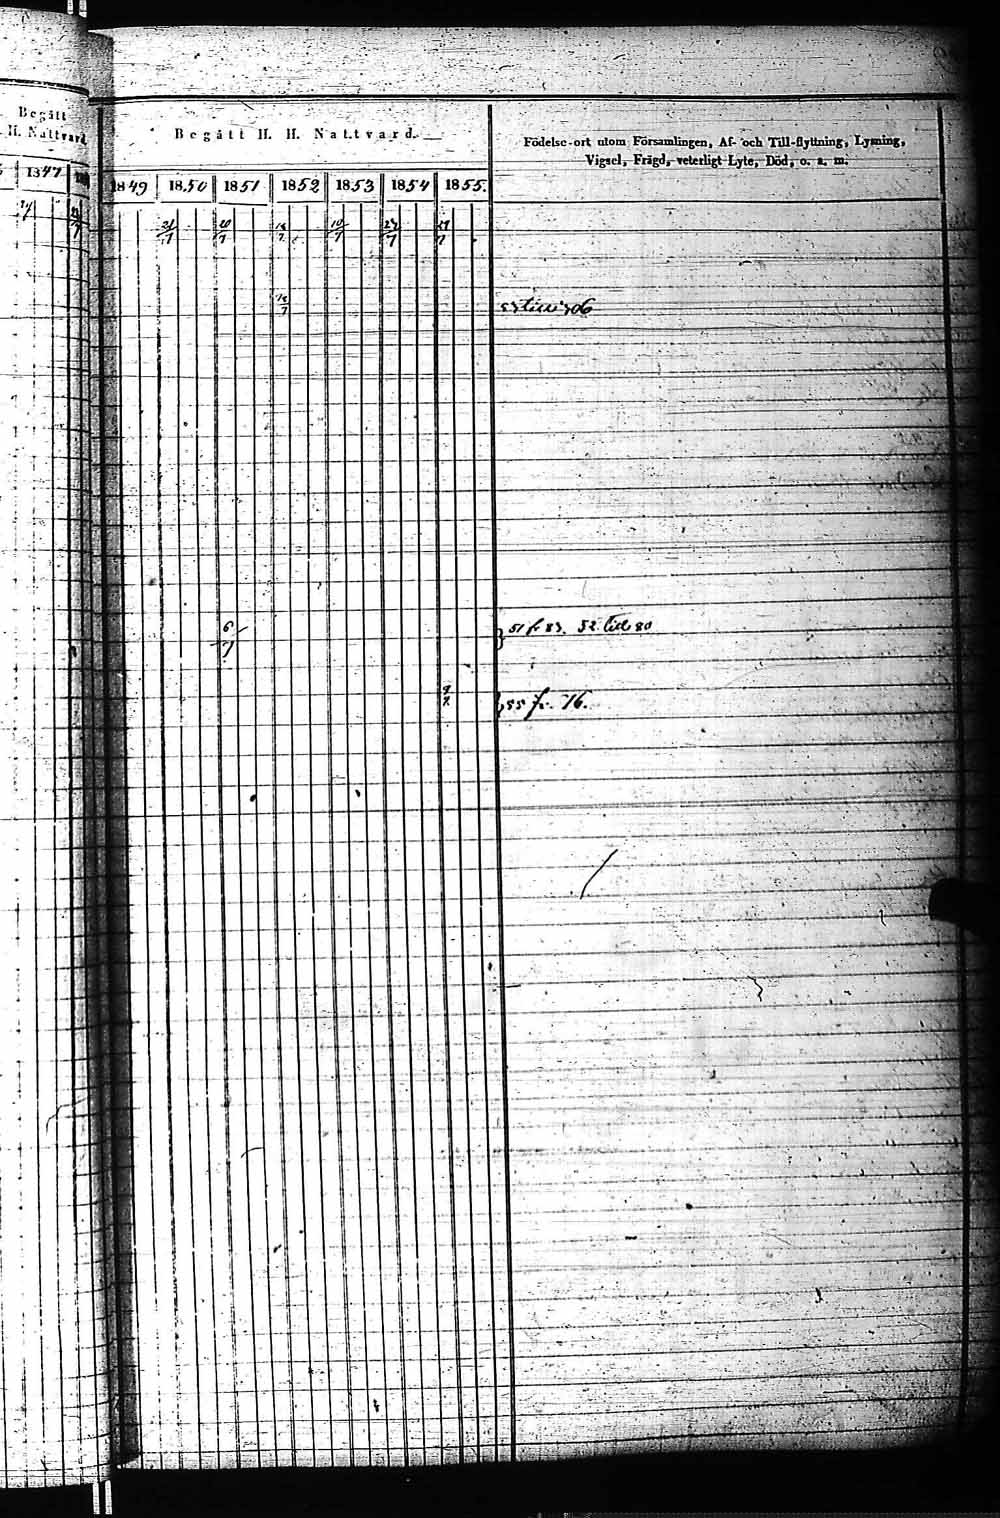 Begått
H. Nattvard
1847
Begått H. H. Nattvard.
Födelse-ort utom Församlingen, Af- och Till-flyttning, Lysning,
Vigsel, Frägd, veterligt Lyte, Död, o. s. m.
1849 1850 1851 1852 1853 1854 1855.
21/7 20/7 18/7 10/7 24/7 29/7
18/7
6/7 51 fr 83. 52 till 80
9/7 55 fr. 76.